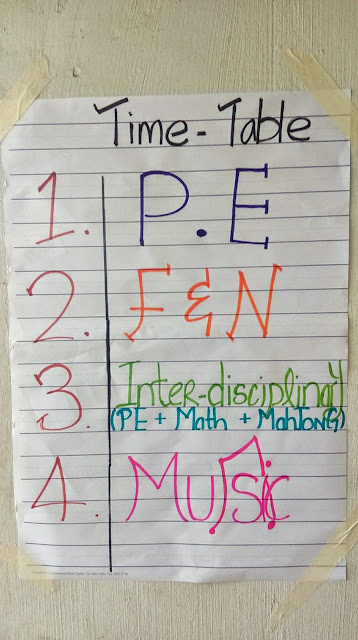 Time-Table
1. P.E
2. F & N
3. Inter-disciplinary
(PE + Math + MahJonG)
4. Music